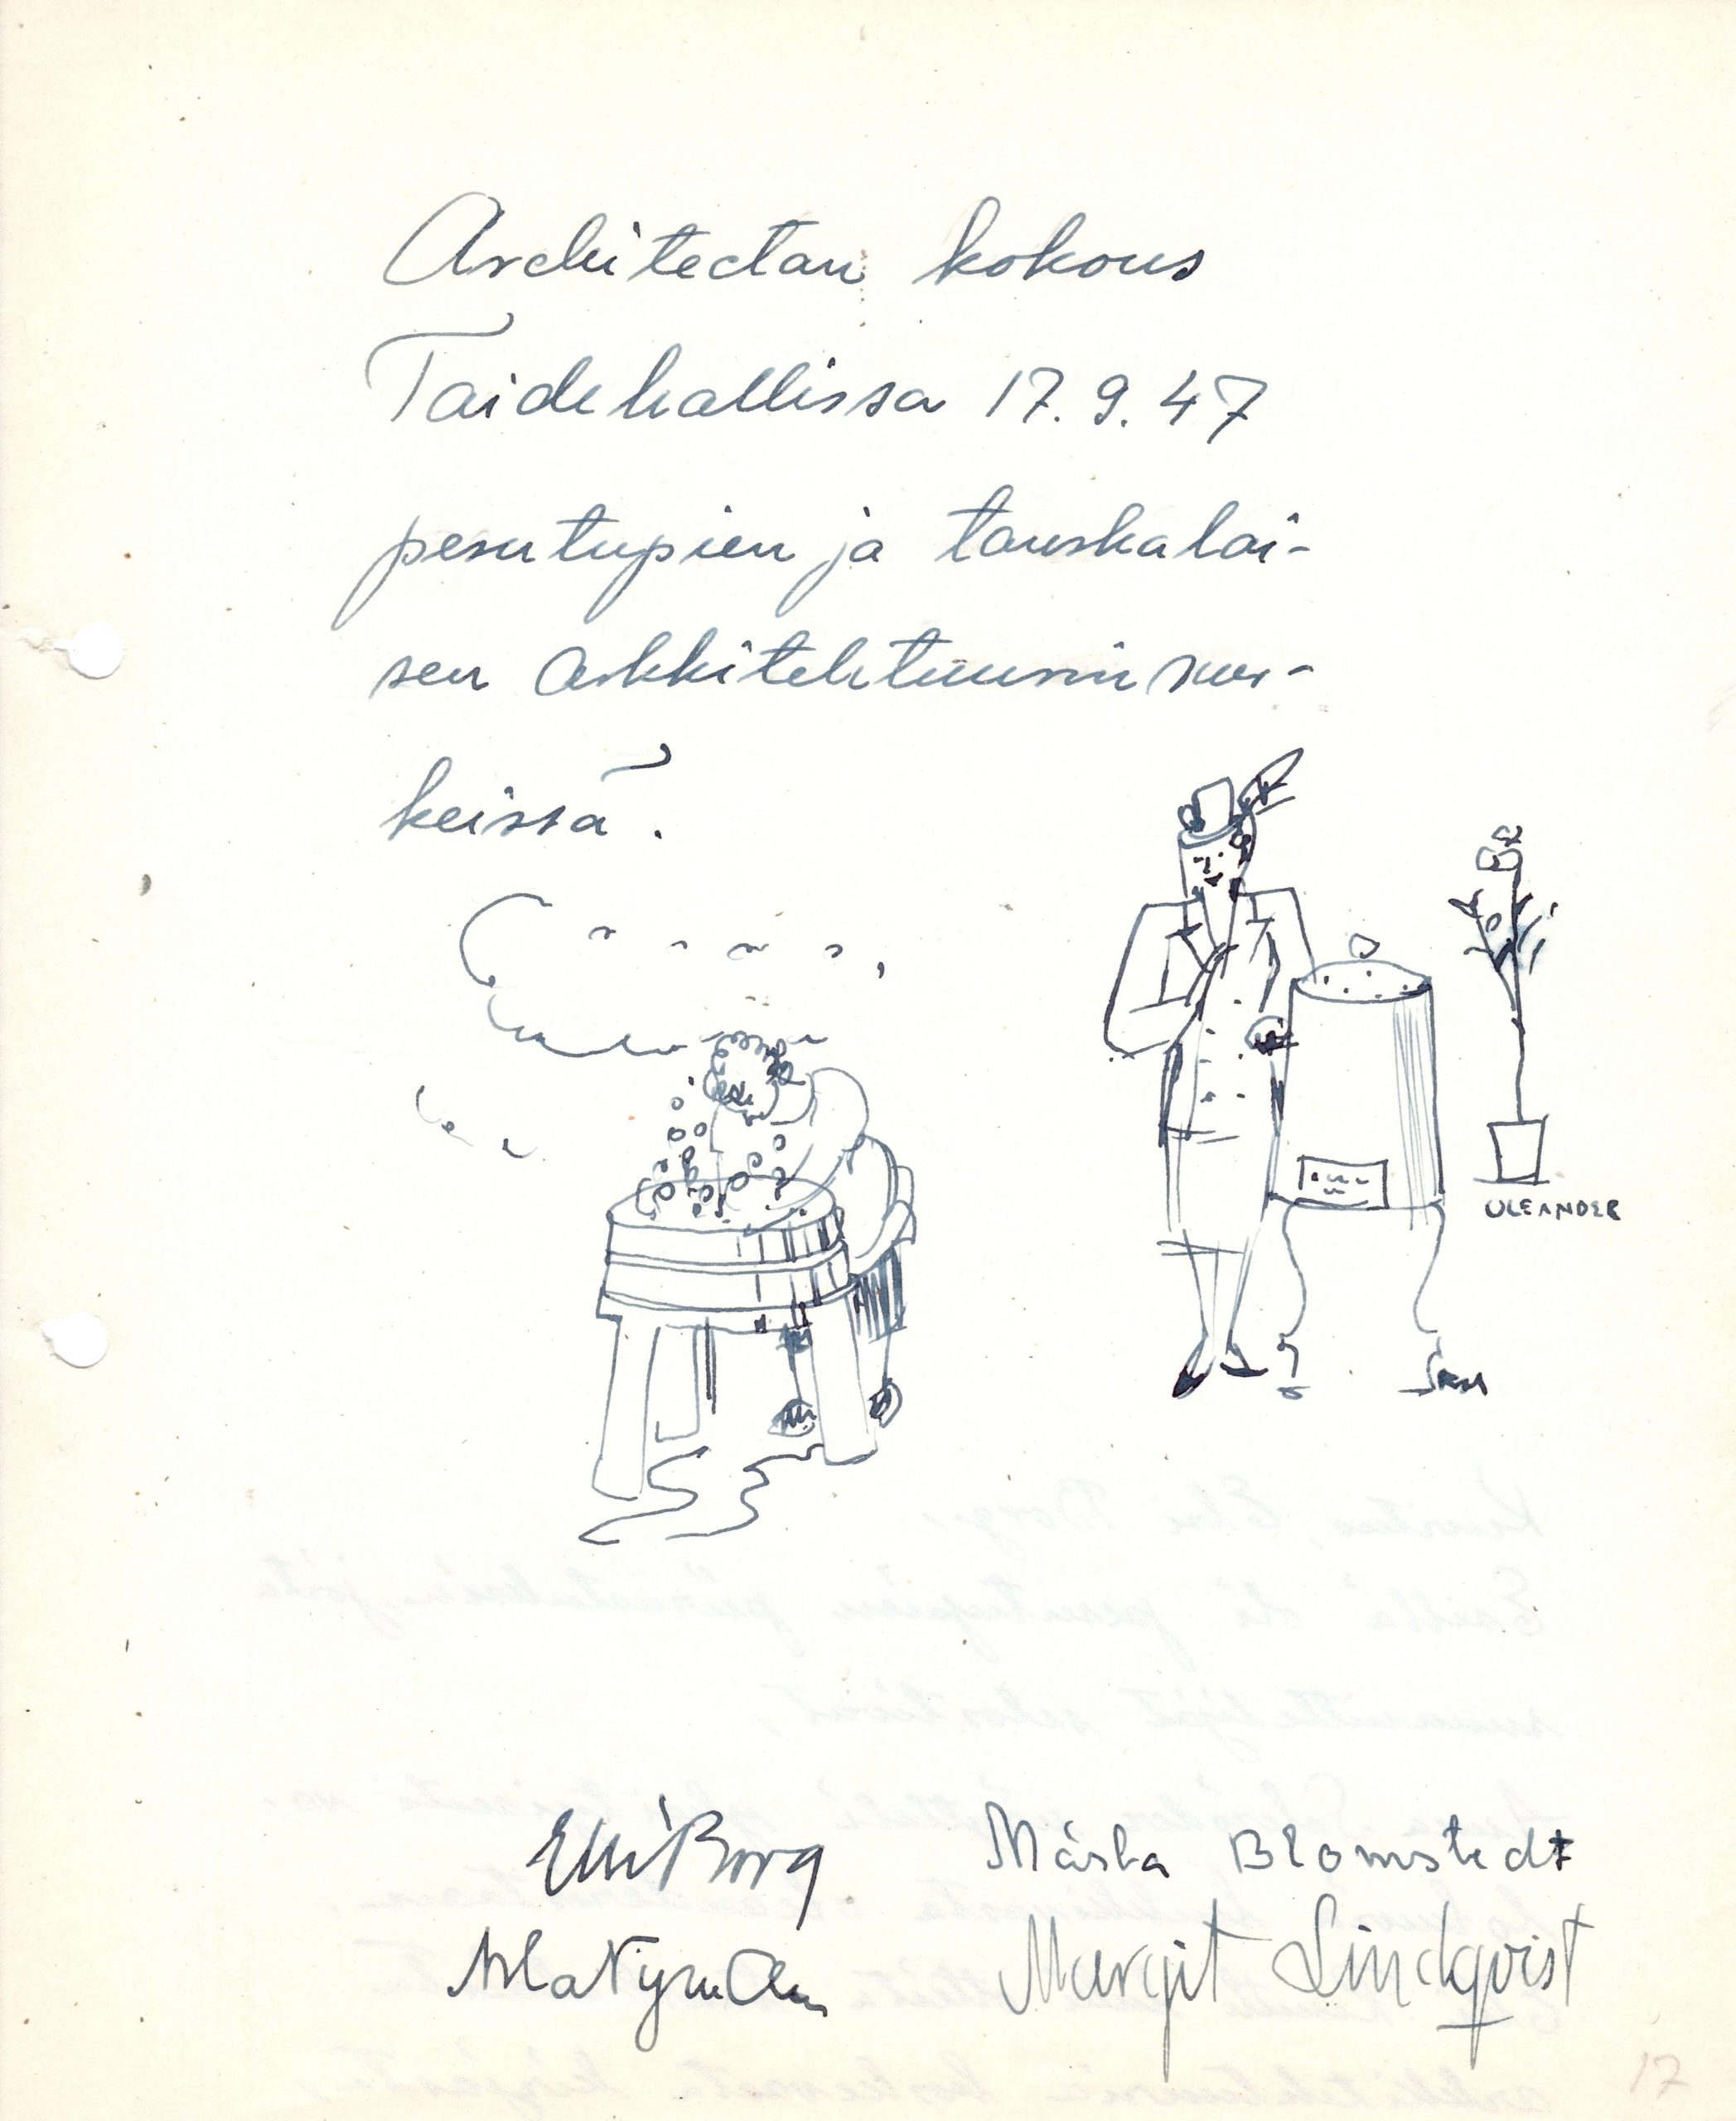 Architectan kokous
Taidehallissa 17.9.47
pesutupien ja tanskalai-
sen arkkitehtuurin mer-
keissä.
OLEANDER
Elli Borg
Märta Blomstedt
Nyman
Margit Lindqvist
17